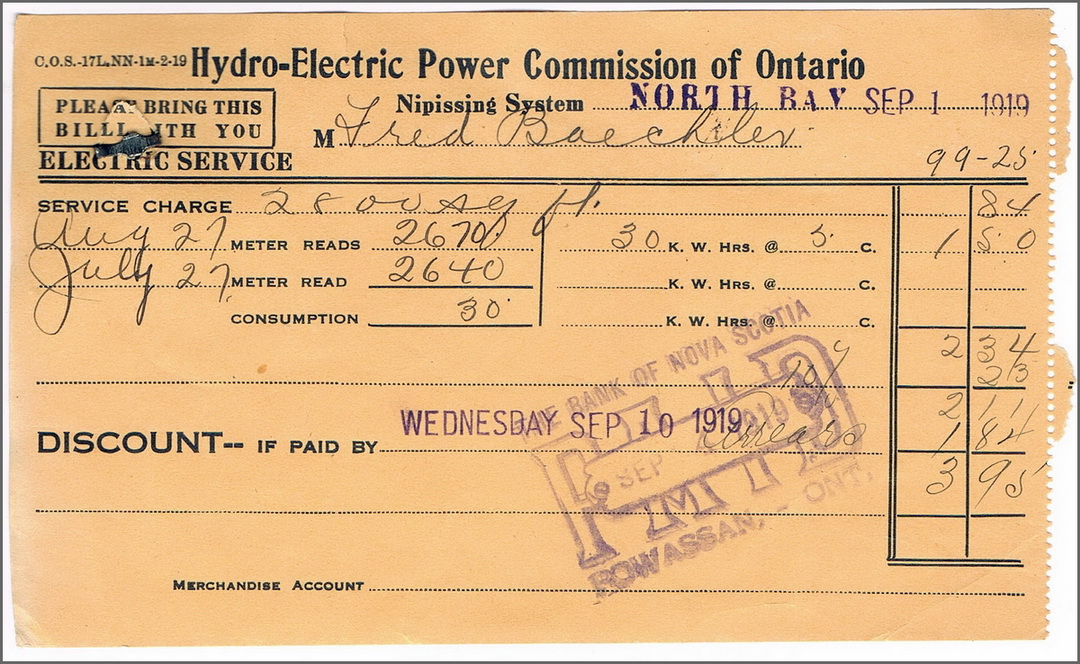 C.O.S.-17L.NN-1M-2-19 Hydro-Electric Power Commission of Ontario
PLEASE BRING THIS
BILL WITH YOU
Nipissing System NORTH BAY SEP 1 1919
M Fred Baechler
99-25
ELECTRIC SERVICE
SERVICE CHARGE 2800 sq ft. 84
Aug 27 METER READS 2670 30 K. W. HRS. @ 5 C. 1 50
July 27 METER READ 2640 K. W. HRS. @ C.
CONSUMPTION 30 K. W. HRS. @ C.
2 34
10% 23
2 11
DISCOUNT-- IF PAID BY WEDNESDAY SEP 10 1919 arrears 1 84
3 95
THE BANK OF NOVA SCOTIA
PAID
SEP 1919
POWASSAN, - ONT.
MERCHANDISE ACCOUNT